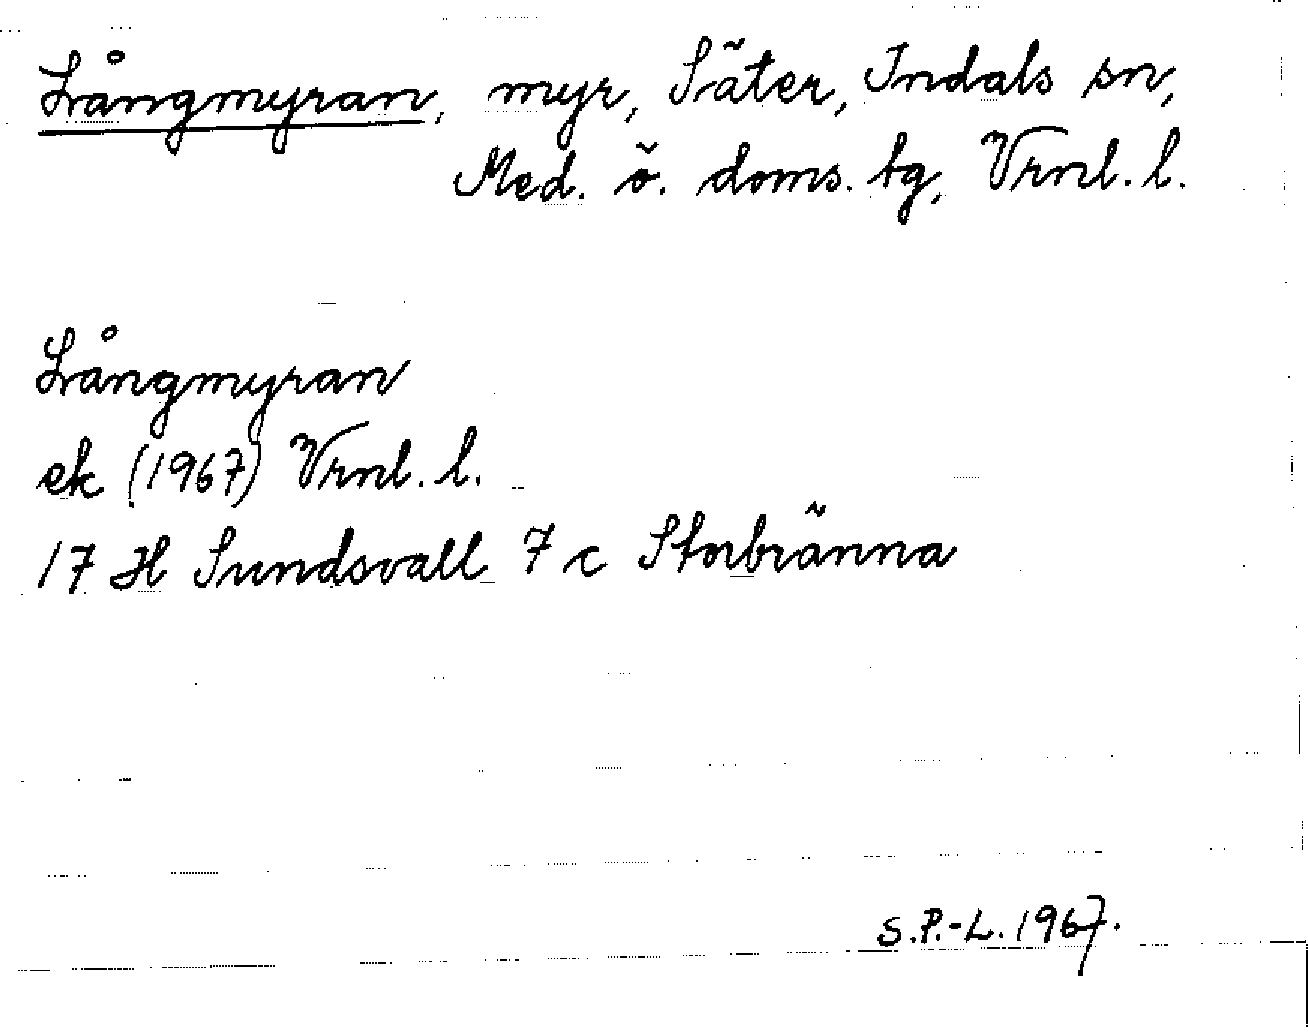 Långmyran, myr, Säter, Indals sn,
Med. ö. doms. tg, Vrnl. l.
Långmyran
ek (1967) Vrnl. l.
17 H Sundsvall 7 c Storbränna
S.P.-L. 1967.